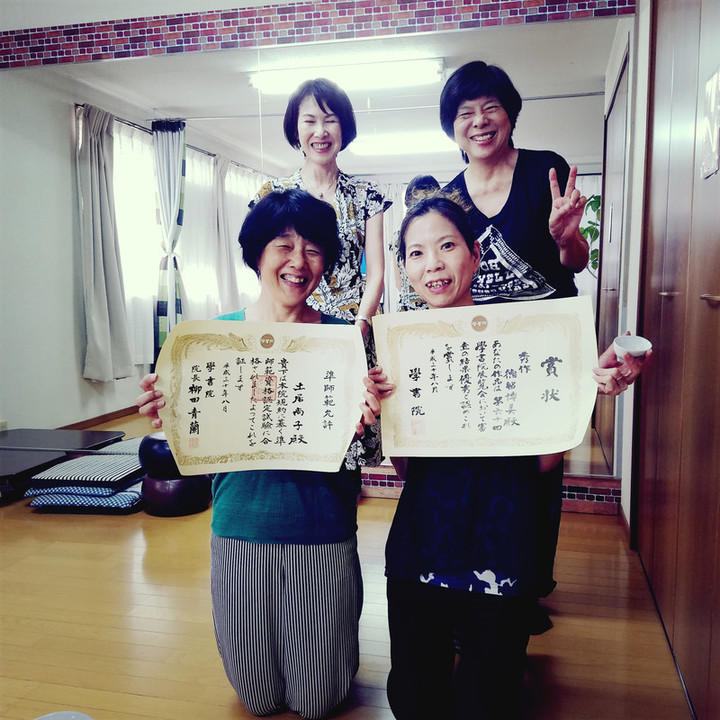 準師範允許
土居尚子殿
貴下は本院規約に基く準
師範資格認定試験に合
格されましたよってこれを
証します
平成三十年八月
學書院
院長 柳田青蘭
賞状
秀作
あなたの作品は第六十四回
學書院展覧会において審
査の結果優秀と認めこれ
を賞します
平成三十年八月
學書院